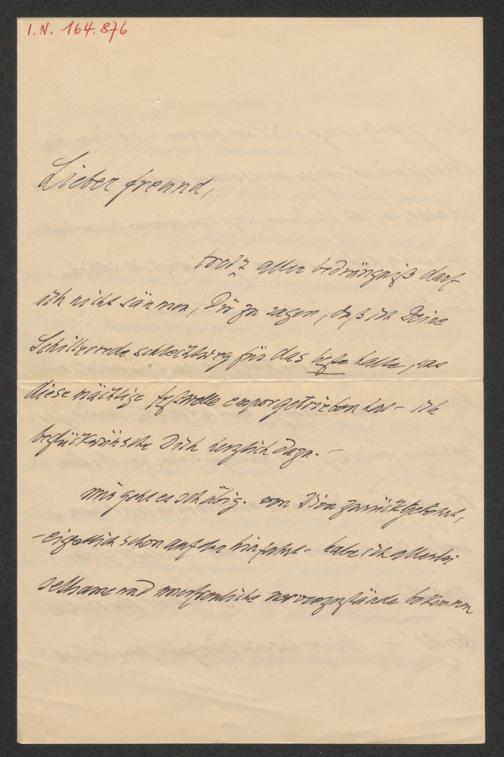 I.N. 164.876
Lieber freund,
trotz aller bedrängniß darf
ich nicht säumen, Dir zu sagen, daß ich Deine
Schillerrede schlechtweg für das beste halte, was
diese mächtige festwelle emporgetrieben hat – ich
beglückwünsche Dich herzlich dazu. –
mir geht es schäbig. von Wien zurückgekehrt,
– eigentlich schon auf der hinfahrt – habe ich allerlei
seltsame und unerfreuliche nervenzustände bekommen